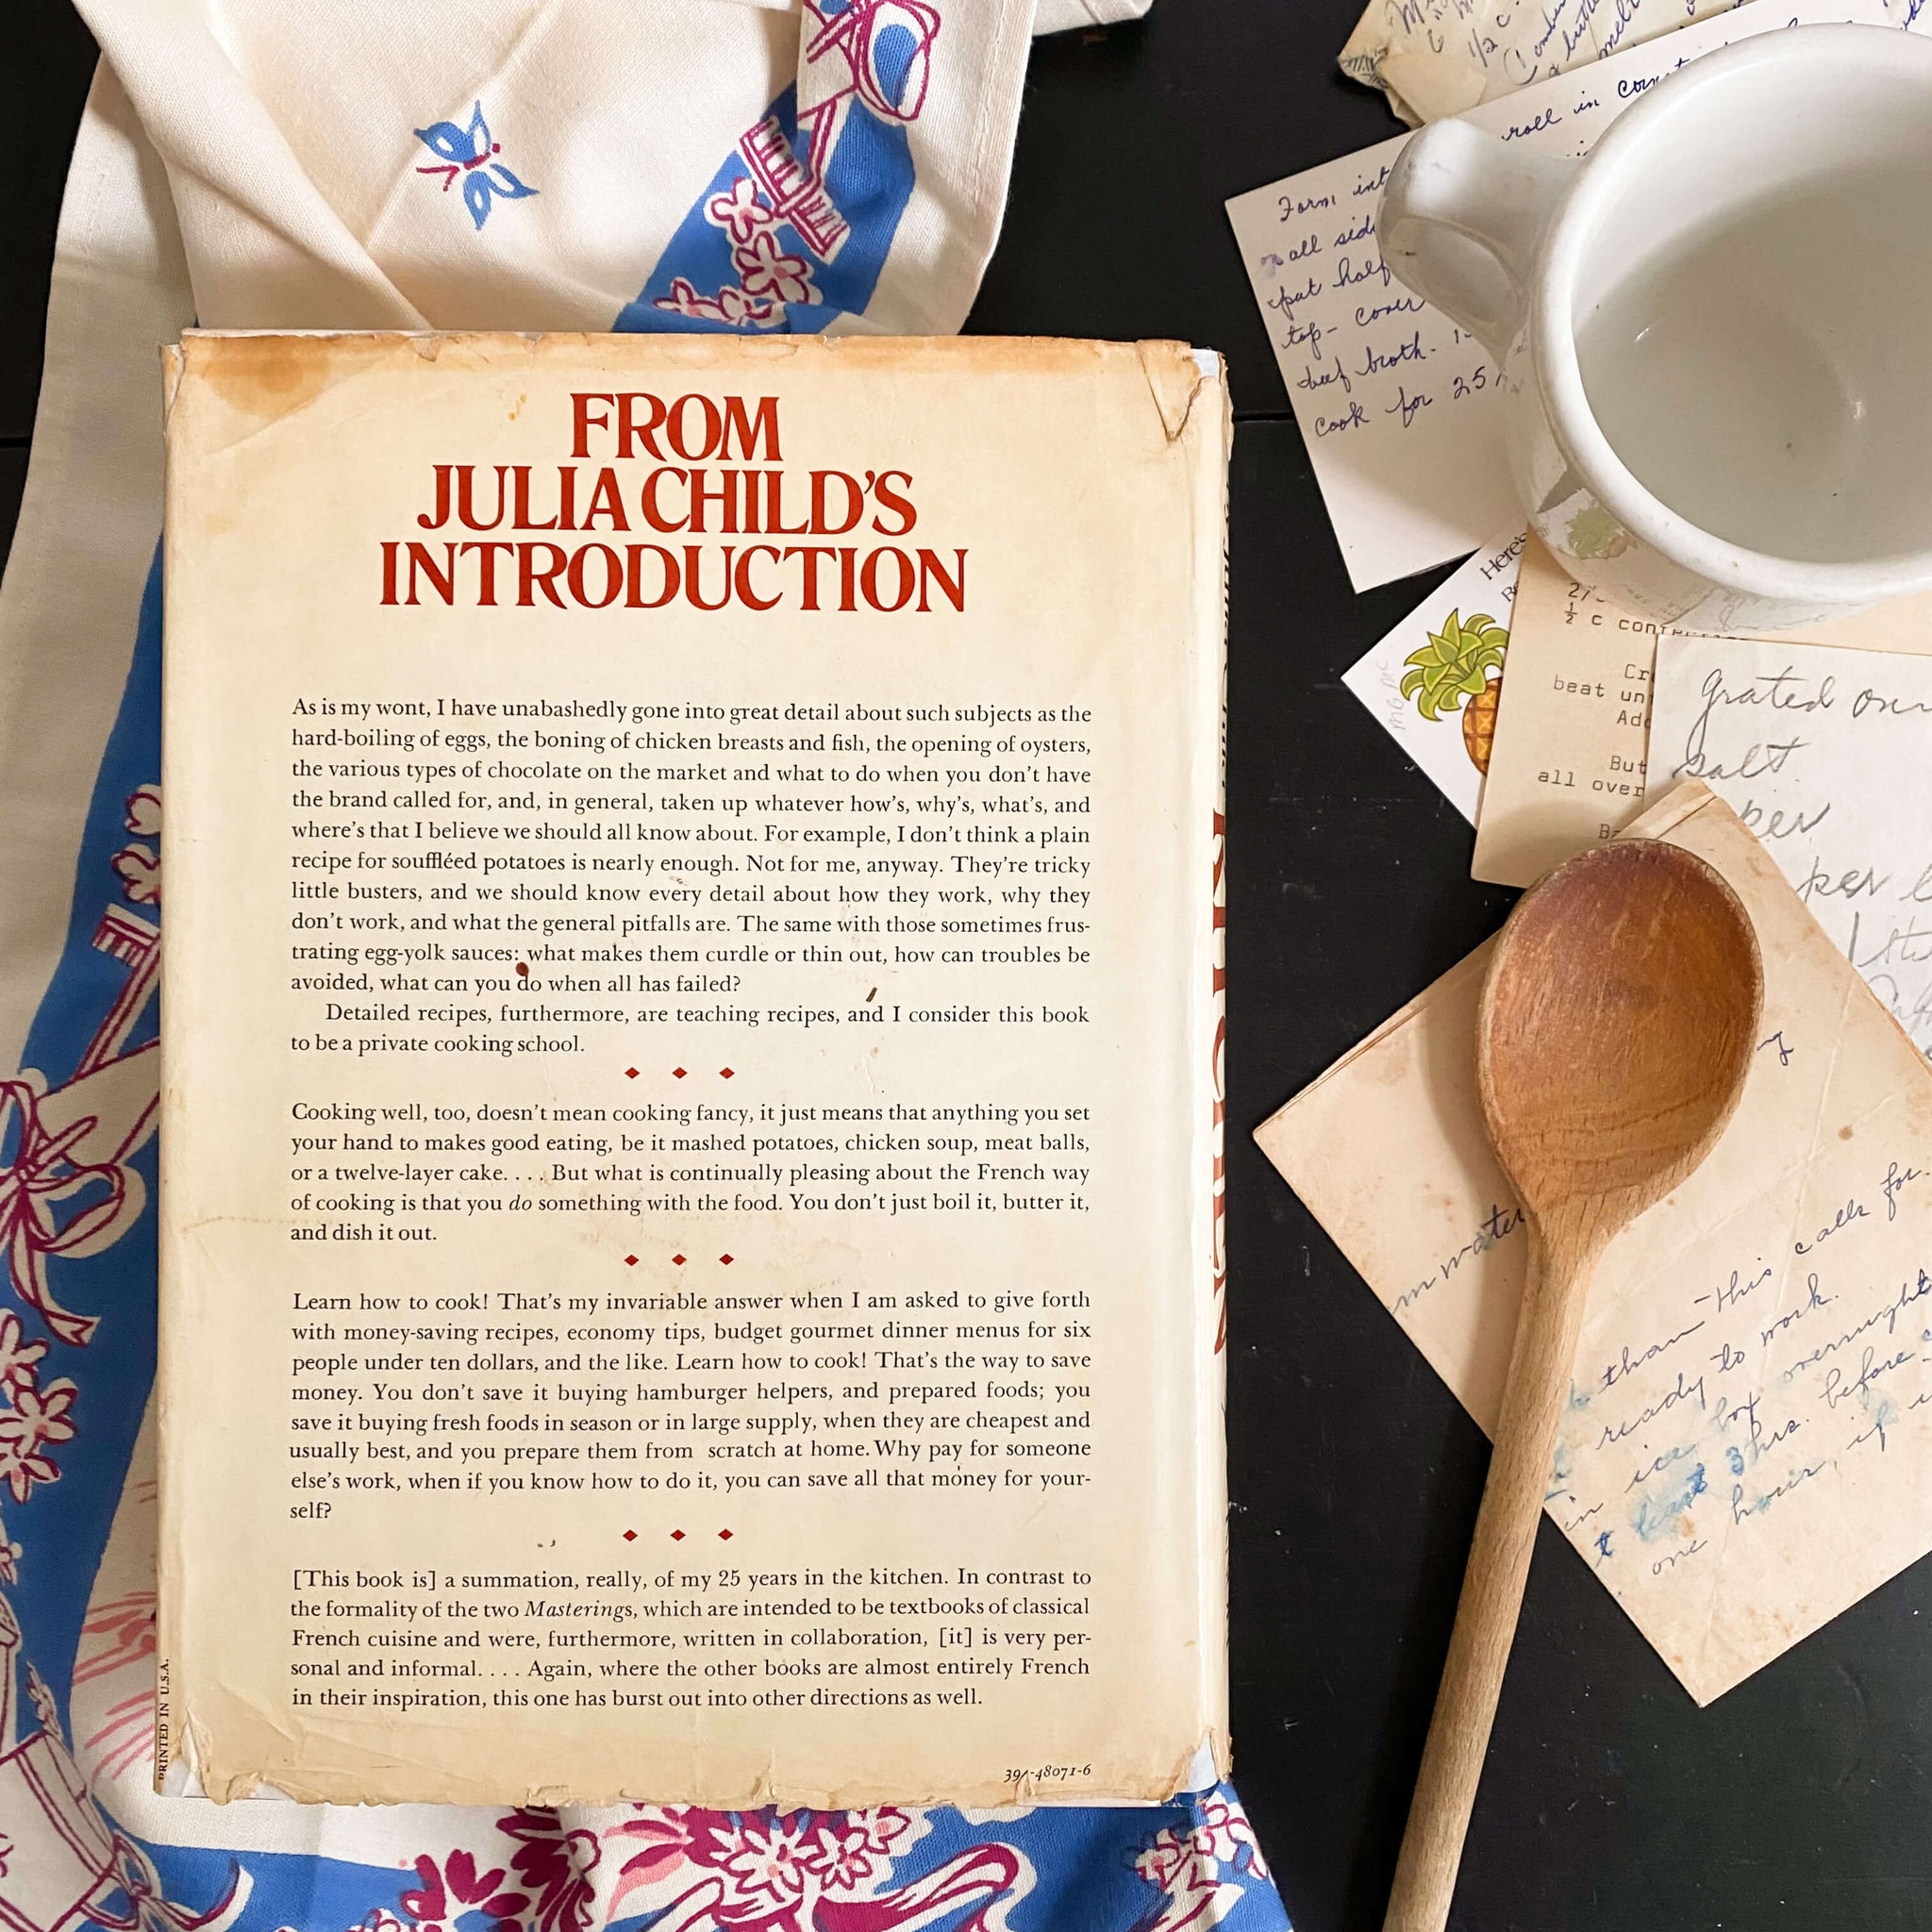 FROM
JULIA CHILD'S
INTRODUCTION
As is my wont, I have unabashedly gone into great detail about such subjects as the
hard-boiling of eggs, the boning of chicken breasts and fish, the opening of oysters,
the various types of chocolate on the market and what to do when you don't have
the brand called for, and, in general, taken up whatever how's, why's, what's, and
where's that I believe we should all know about. For example, I don't think a plain
recipe for souffléed potatoes is nearly enough. Not for me, anyway. They're tricky
little busters, and we should know every detail about how they work, why they
don't work, and what the general pitfalls are. The same with those sometimes frus-
trating egg-yolk sauces: what makes them curdle or thin out, how can troubles be
avoided, what can you do when all has failed?
Detailed recipes, furthermore, are teaching recipes, and I consider this book
to be a private cooking school.
Cooking well, too, doesn't mean cooking fancy, it just means that anything you set
your hand to makes good eating, be it mashed potatoes, chicken soup, meat balls,
or a twelve-layer cake. . . . But what is continually pleasing about the French way
of cooking is that you do something with the food. You don't just boil it, butter it,
and dish it out.
Learn how to cook! That's my invariable answer when I am asked to give forth
with money-saving recipes, economy tips, budget gourmet dinner menus for six
people under ten dollars, and the like. Learn how to cook! That's the way to save
money. You don't save it buying hamburger helpers, and prepared foods; you
save it buying fresh foods in season or in large supply, when they are cheapest and
usually best, and you prepare them from scratch at home. Why pay for someone
else's work, when if you know how to do it, you can save all that money for your-
self?
[This book is] a summation, really, of my 25 years in the kitchen. In contrast to
the formality of the two Masterings, which are intended to be textbooks of classical
French cuisine and were, furthermore, written in collaboration, [it] is very per-
sonal and informal. . . . Again, where the other books are almost entirely French
in their inspiration, this one has burst out into other directions as well.
PRINTED IN U.S.A.
-48071-6
1/2 c
melt
roll in
Form
all
put half
top- cover
beef broth.
cook for 25
Here's
½ c
beat
But
all over
grated
salt
water
than - this calls for
ready to work.
in ice box overnight
3 hrs. before
one hour, if